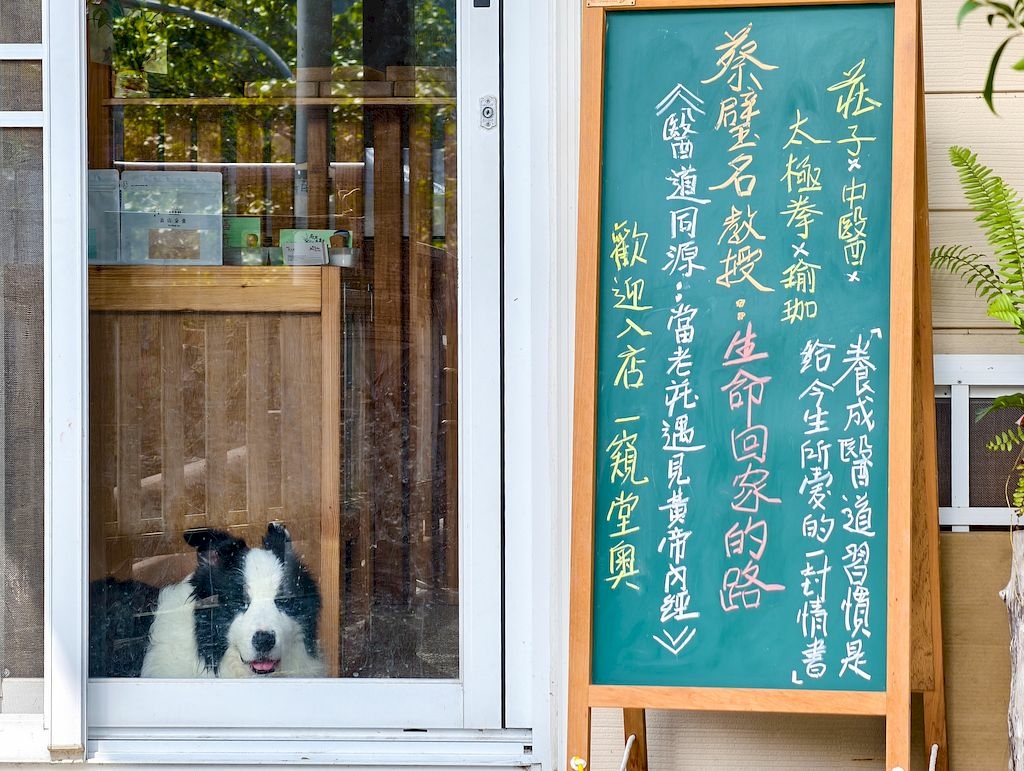 莊子×中醫×
太極拳×瑜珈
「養成醫道習慣是
給今生所愛的一封情書」
蔡璧名教授:生命回家的路
《醫道同源:當老莊遇見黃帝內經》
歡迎入店一窺堂奧